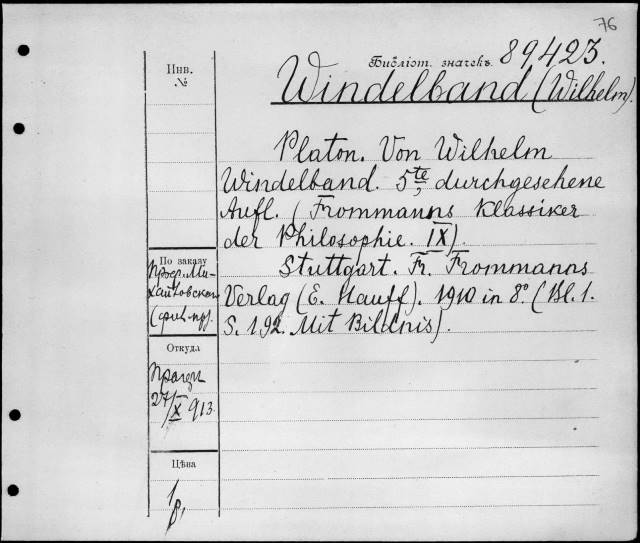 76
Библіот. значекъ. 89,423.
Windelband (Wilhelm).
Инв.
№
Platon. Von Wilhelm
Windelband. 5te, durchgesehene
Aufl. (Frommanns Klassiker
der Philosophie. IX).
Stuttgart. Fr. Frommanns
Verlag (E. Hauff). 1910 in 8° (Bl. 1.
S. 192. Mit Bildnis).
По заказу
Проф. Ми-
хайловскаго
Откуда
27/X 913.
Цѣна